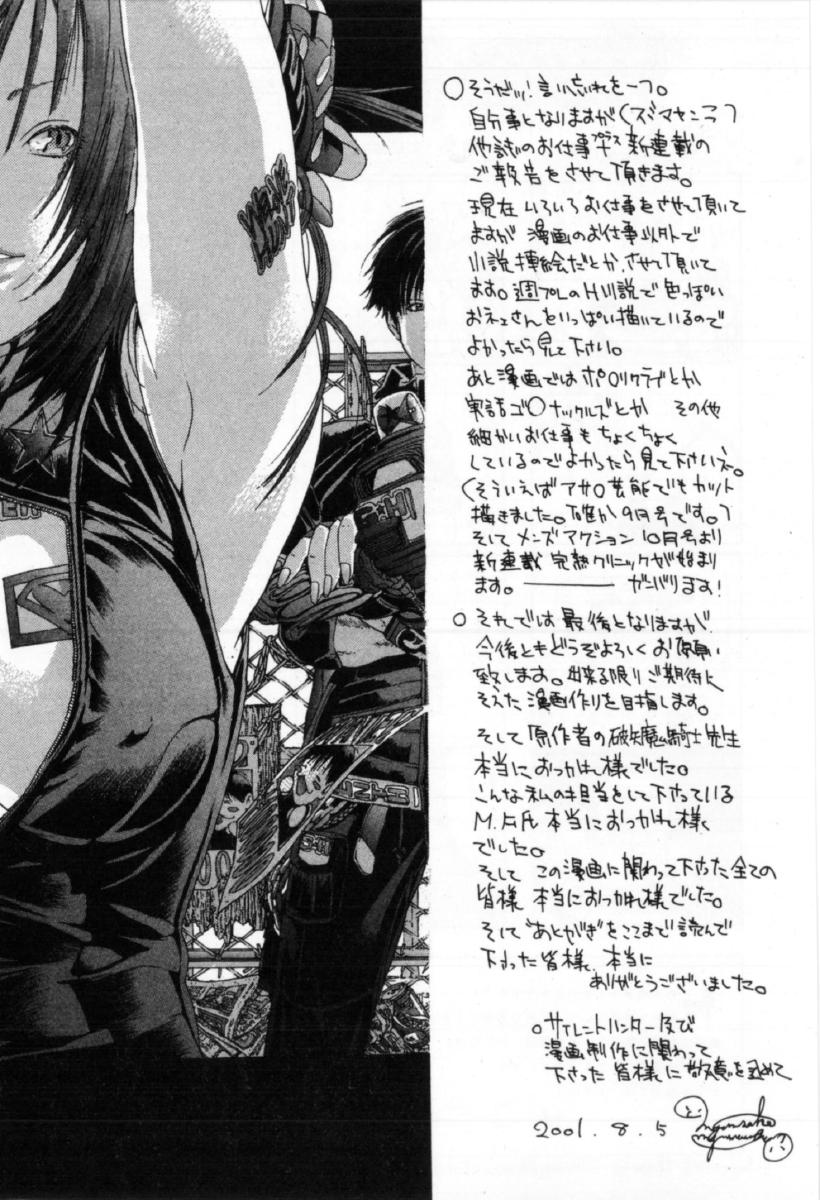 ○そうだッ!言い忘れを一つ。
自分事となりますが(スミマセンネ)
他誌のお仕事プラス新連載の
ご報告をさせて頂きます。
現在いろいろお仕事をさせて頂いて
ますが 漫画のお仕事以外で
小説挿絵だとか、させて頂いて
ます。週プレのH小説で色っぽい
おネェさんといっぱい描いているので
よかったら見て下さい。
あと漫画ではポロリクラブとか
実話ゴ○ナックルズとか その他
細かいお仕事もちょくちょく
しているのでよかったら見て下さいネ。
(そういえばアサ○芸能でもカット
描きました。確か9月号です。)
そしてメンズアクション10月号より
新連載 クリニックが始まり
ます。――― ガンバリます!
○それでは最後となりますが
今後ともどうぞよろしくお願い
致します。出来る限りご期待に
そえた漫画作りを目指します。
そして原作者の破矢魔騎士先生
本当におつかれ様でした。
こんな私の担当をして下さっている
M.F氏 本当におつかれ様
でした。
そして この漫画に関わって下さった全ての
皆様 本当におつかれ様でした。
そして“あとがき”をここまで読んで
下さった皆様、本当に
ありがとうございました。
○サイレントハンター及び
漫画制作に関わって
下さった皆様に敬意を込めて
2001.8.5